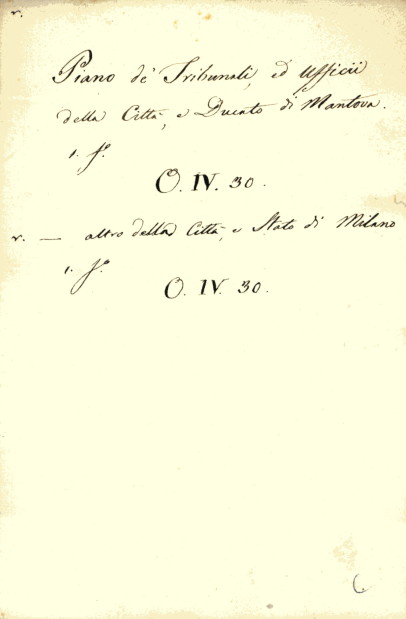 r.
Piano de' Tribunali, ed Ufficii
della Città, e Ducato di Mantova.
1. f.º
O. IV. 30.
r. — altro della Città, e Stato di Milano
1. f.º
O. IV. 30.